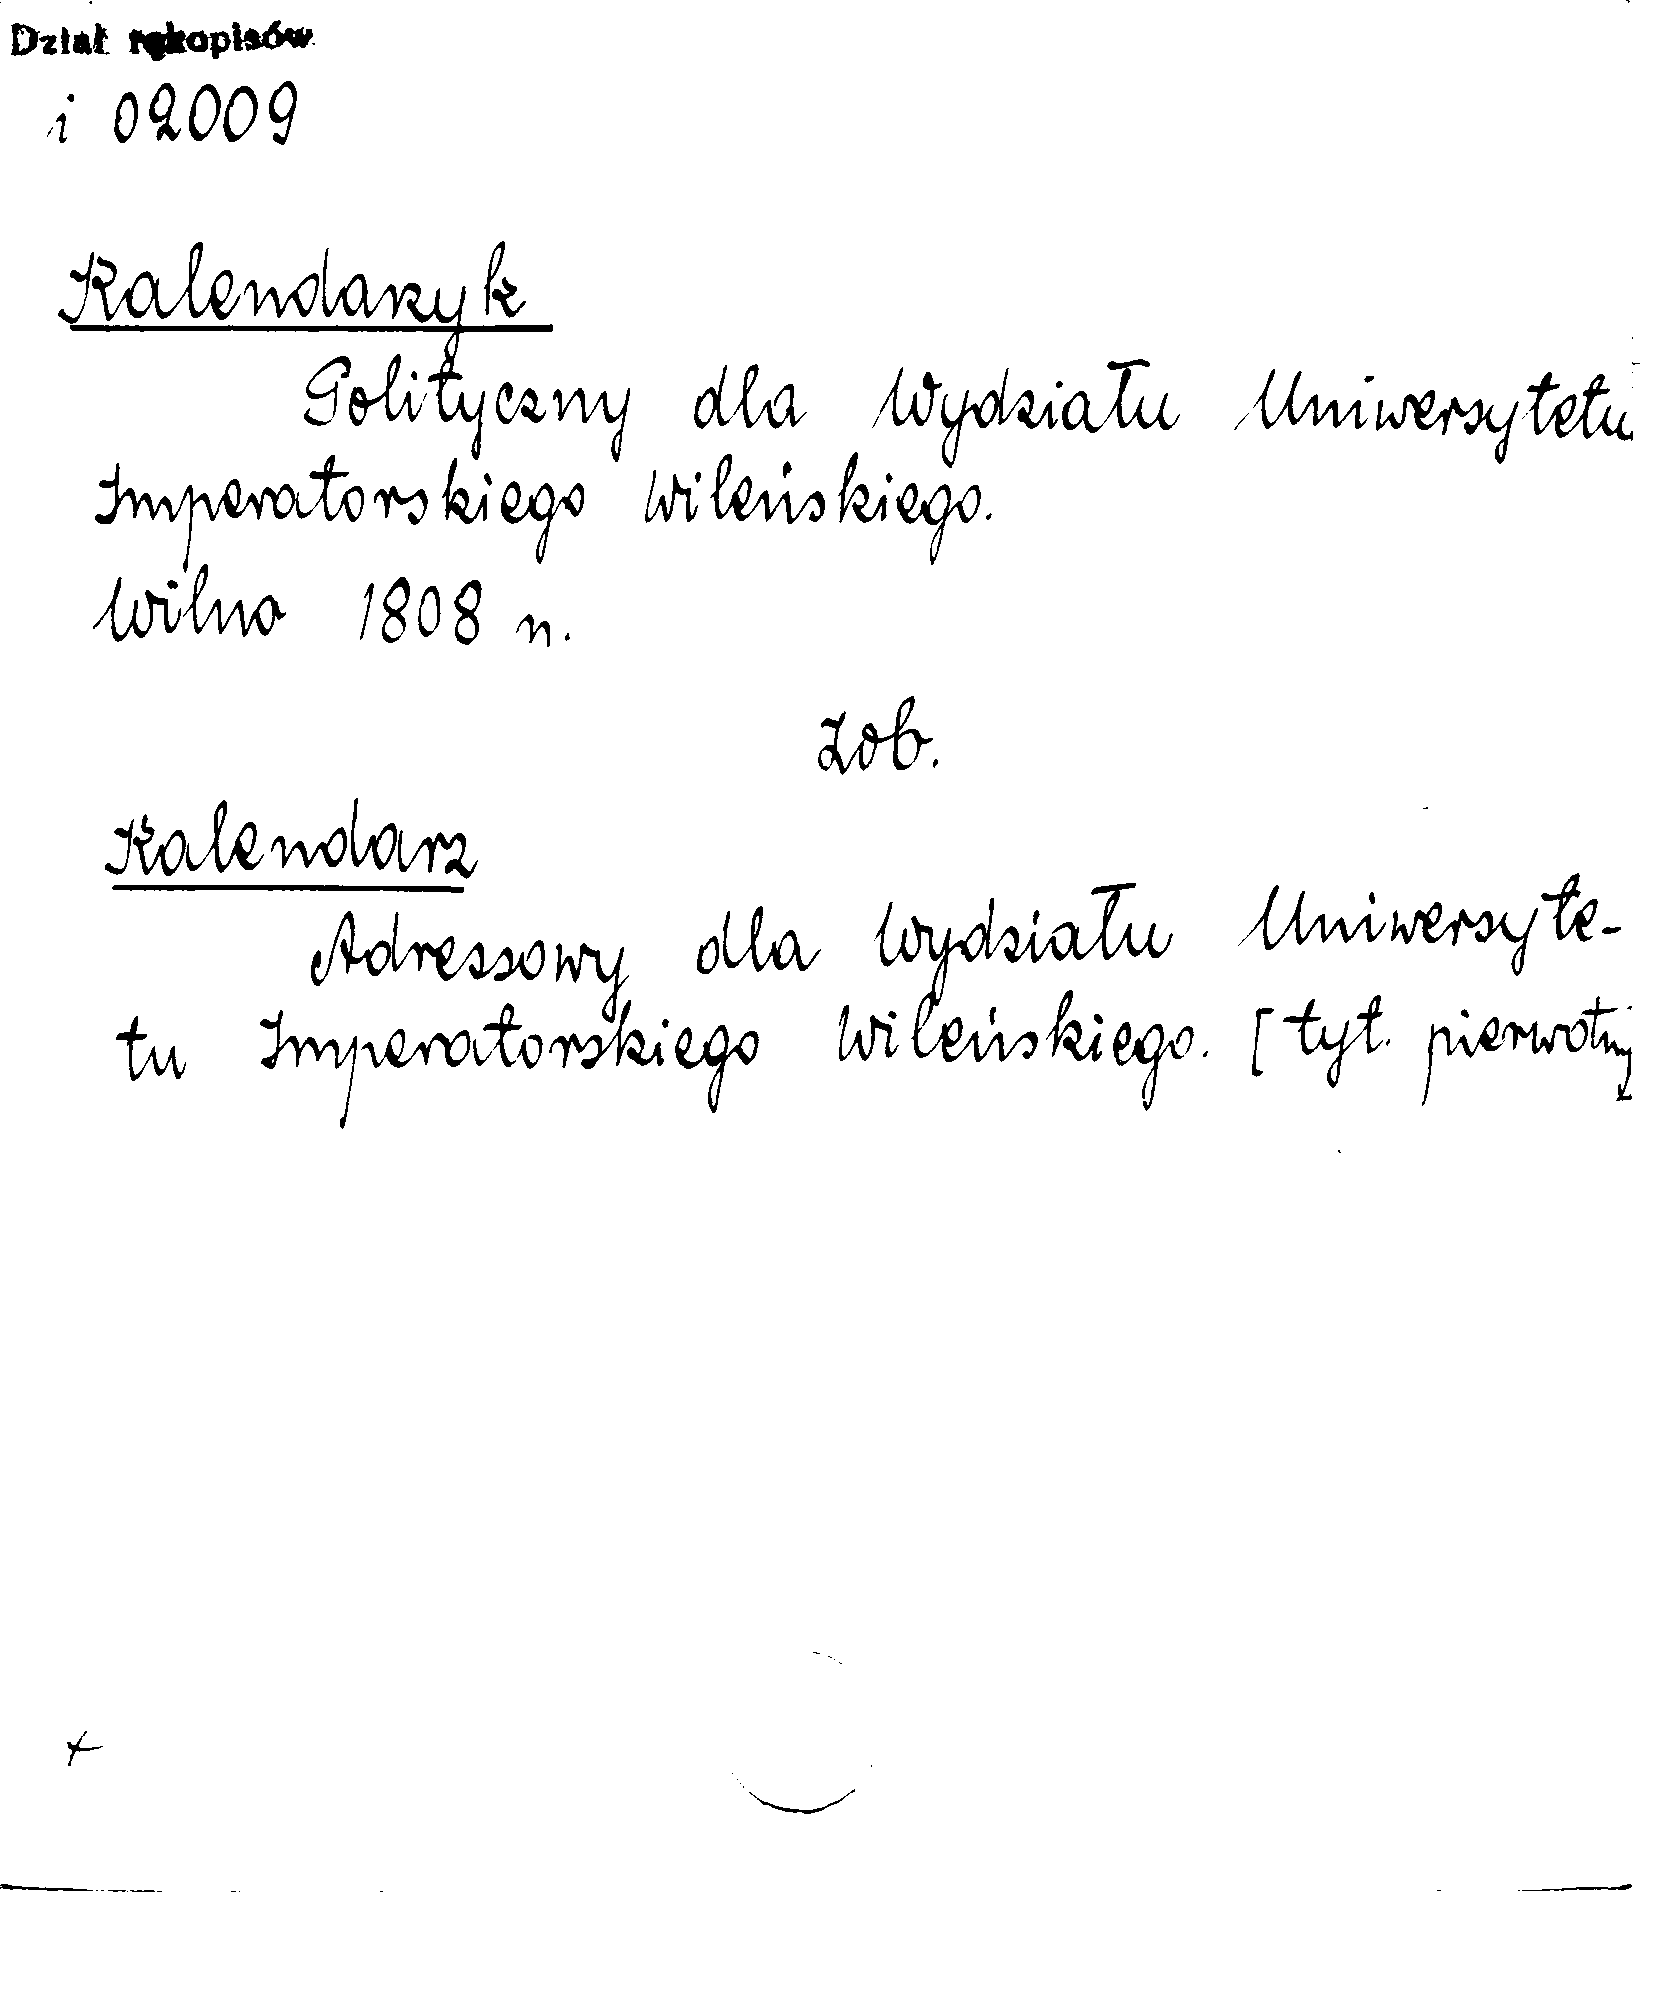 Dział rękopisów
i 02009
Kalendarzyk
Polityczny dla Wydziału Uniwersytetu
Imperatorskiego Wileńskiego.
Wilno 1808 r.
Zob.
Kalendarz
Adressowy dla Wydziału Uniwersyte-
tu Imperatorskiego Wileńskiego. [tyt. pierwotny